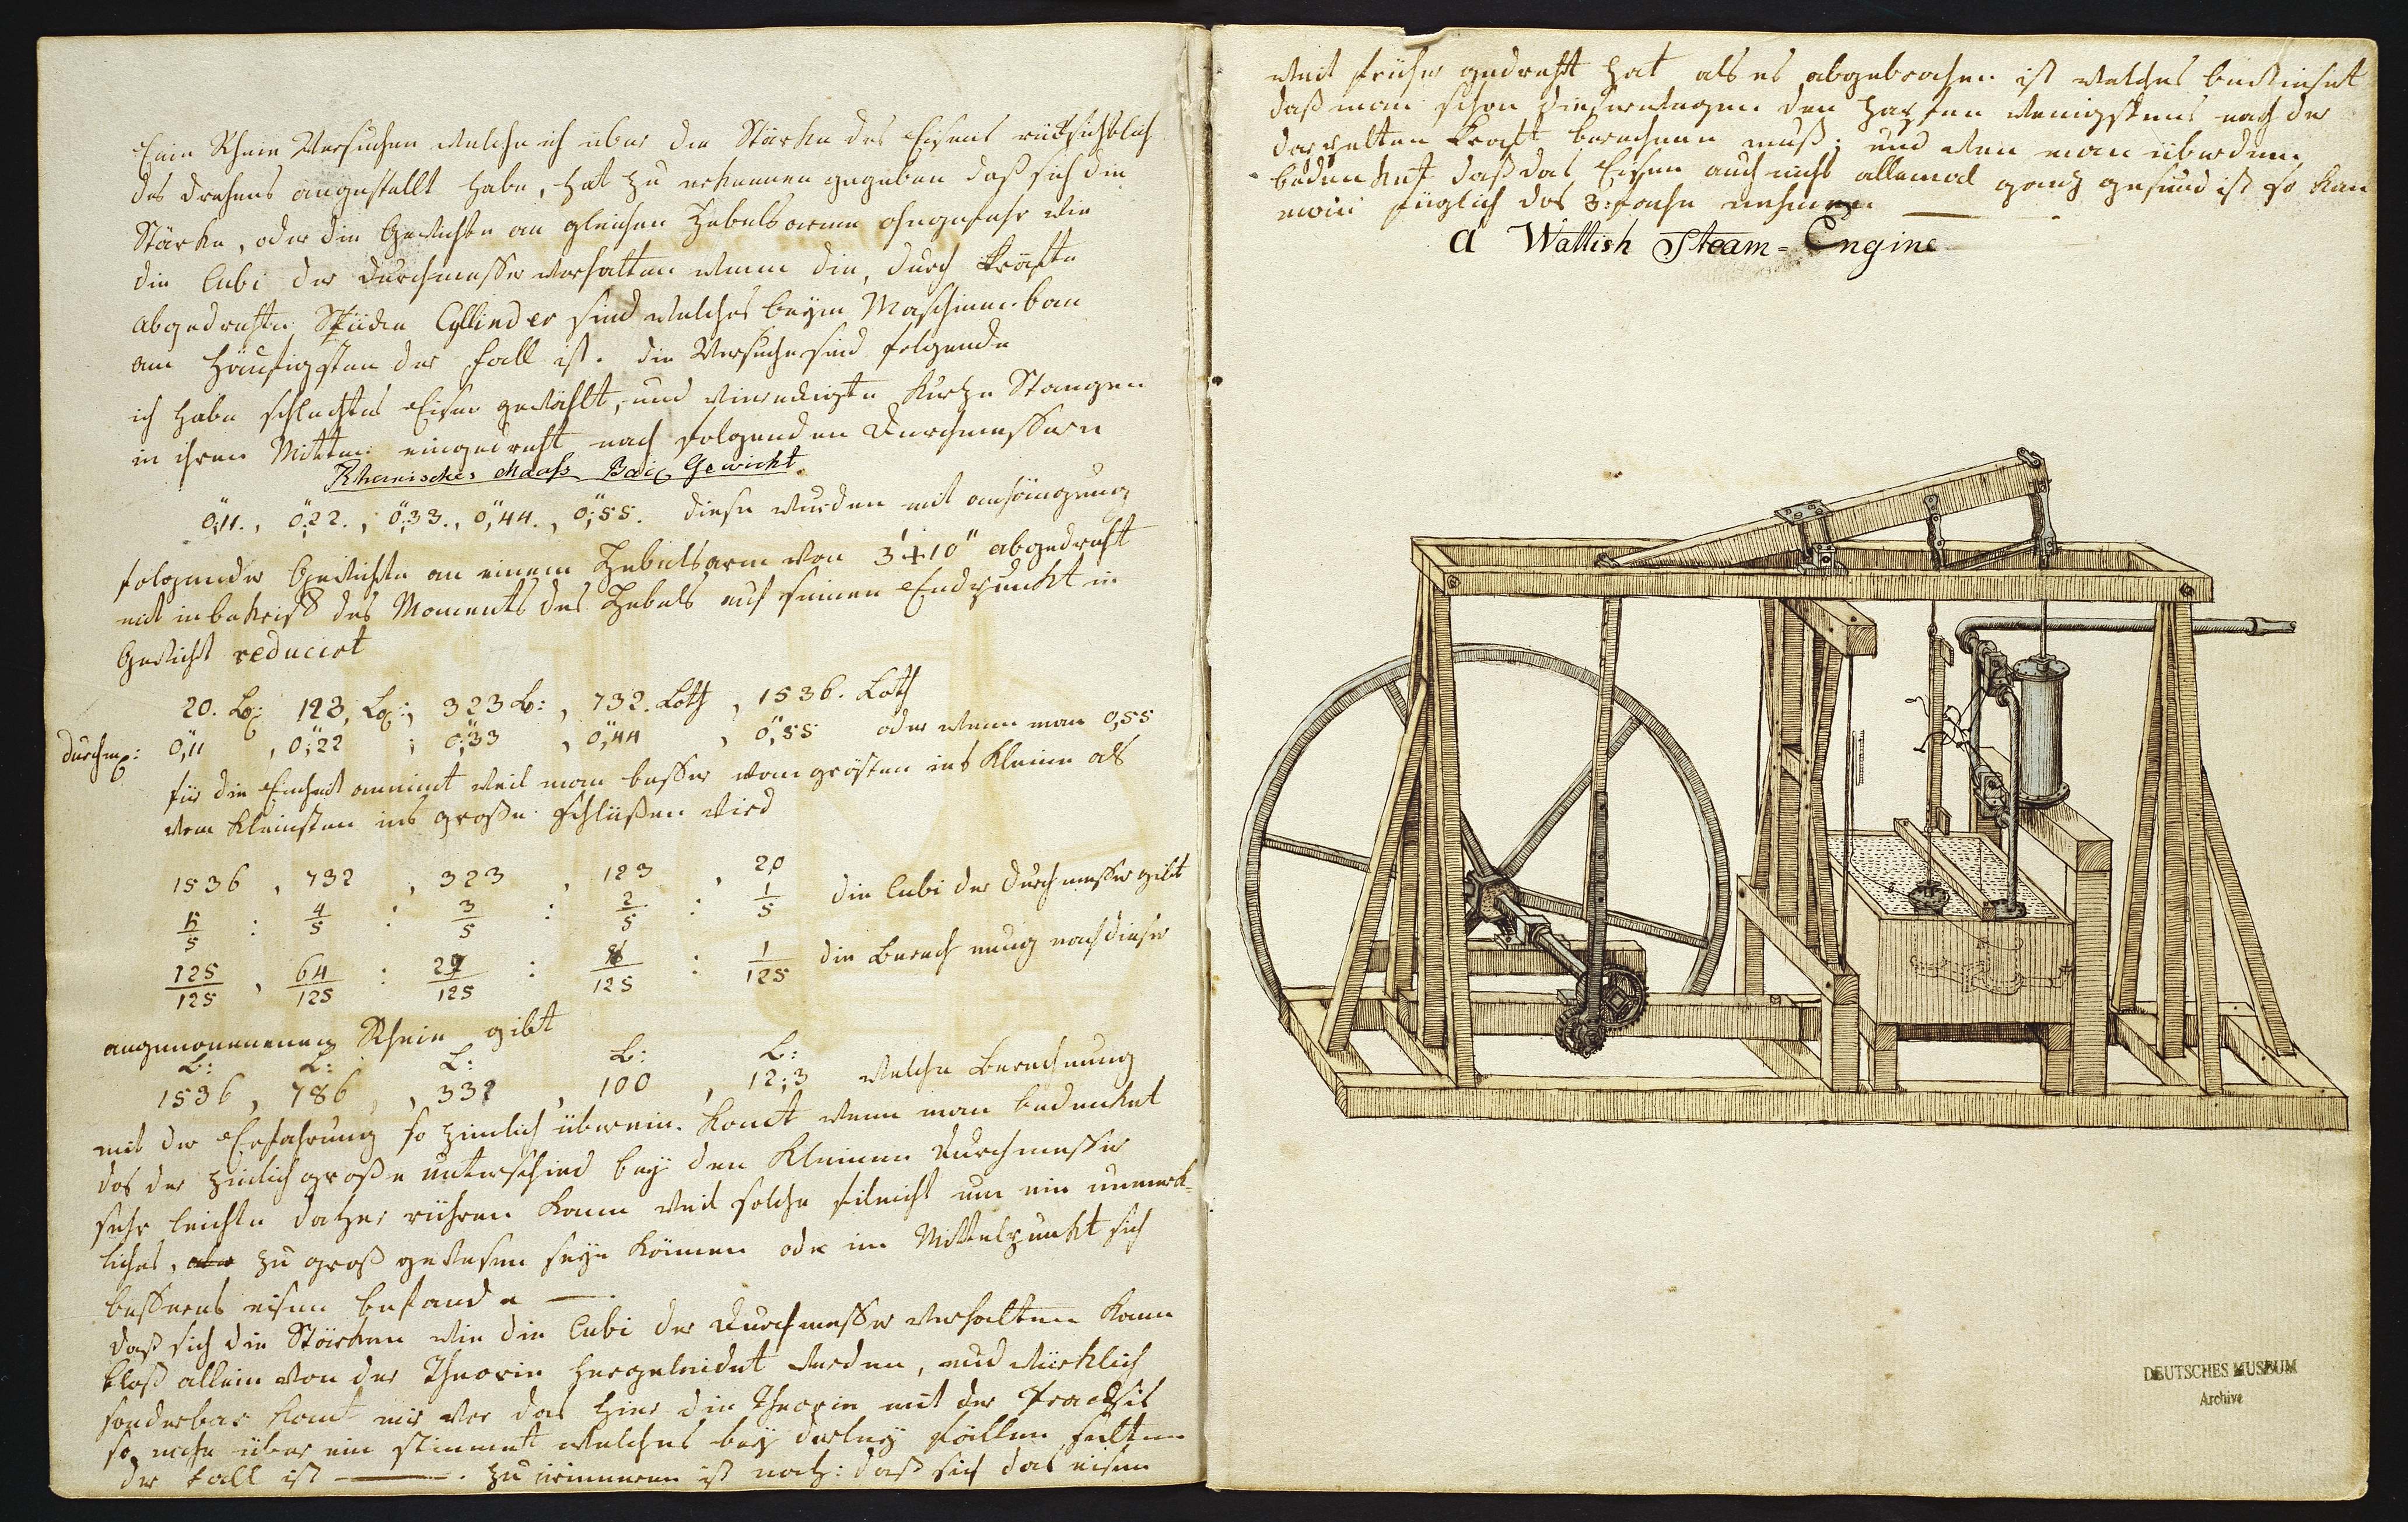 Eine Reihe Versuchen welche ich über die Stärke des Eisens rüksichtlich
des drehens angestellt habe, hat zu erkennen gegeben daß sich die
Stärke, oder die Gewichte an gleichen Hebelsarme ohngefehr wie
die Cubi der Durchmesser verhalten wenn die, durch Kräfte
abgedrehte Stüke Cyllinder sind welches beym Maschinenbau
am häufigsten der Fall ist. die Versuche sind folgende
ich habe schlechtes Eisen gewählt, und vierekigte kurze Stangen
in ihren Mitten eingedreht nach folgenden Durchmessern
Rheinisches Maass Baiʳ Gewicht
0,"11., 0,"22., 0,"33., 0,"44., 0,"55. diese wurden mit anhängung
folgender Gewichte an einem Hebelsarm von 3'+10" abgedreht
mit inbekrif des Moments des Hebels auf seinen Endpunkt in
Gewicht reducirt
20. Lo: 123, Lo:, 323 L:, 732. Loth, 1536. Loth
durchmr: 0,"11, 0,"22; 0,"33, 0,"44, 0,"55 oder wenn man 0,55
für die Einheit annimt weil man besser vom grösten ins kleine als
vom kleinsten ins große schlüßen wird
1536, 732, 323, 123, 20
5/5 : 4/5 : 3/5 : 2/5 : 1/5 die Cubi der durchmesser gibt
125/125, 64/125 : 27/125 : 8/125 : 1/125 die Berechnung nach dieser
angenommenen Reihe gibt
L: L: L: L: L:
1536, 786, 332, 100, 12,3 welche Berechnung
mit der Erfahrung so zimlich überein komt wenn man bedenket
das der zimlich große unterschied bey den kleinen Durchmesser
sehr leichte daher rühren kann weil solche fileicht um ein unmerk=
liches, zu groß gewesen seyn können oder im Mittelpunkt sich
besseres eisen befande —.
daß sich die Stärken wie die Cubi der Durchmesser verhalten kann
bloß allein von der Theorie hergeleidet werden, und würklich
sonderbar komt mir vor das hier die Theorie mit der Practsis
so nahe über ein stimmet welches bey derley Fällen selten
der Fall ist —. zu erinneren ist noch: daß sich das eisen
weit früher gedreht hat als es abgebrochen ist welches
daß man schon dieserwegen den Zapfen wenigstens nach der
doppelten Kraft berechnen muß; und wen man überdem
bedenket daß das Eisen auch nicht allemal ganz gesund ist so kan
man füglich das 3:fache nehmen —.
a Wattish Steam=Engine
DEUTSCHES MUSEUM
Archive